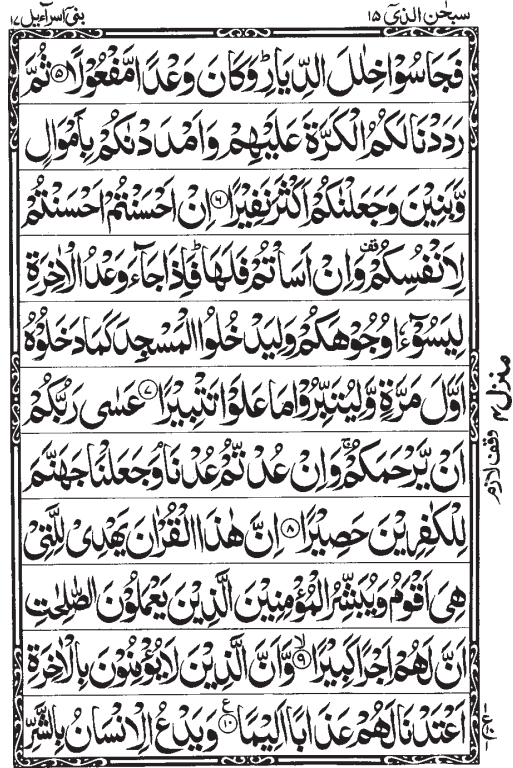 سبحٰن الذیٓ ۱۵
بنیٓ اسرآءیل ۱۷
فَجَاسُوْا خِلٰلَ الدِّيَارِ ؕ وَكَانَ وَعْدًا مَّفْعُوْلًا ﴿۵﴾ ثُمَّ
رَدَدْنَا لَكُمُ الْكَرَّةَ عَلَيْهِمْ وَاَمْدَدْنٰكُمْ بِاَمْوَالٍ
وَّبَنِيْنَ وَجَعَلْنٰكُمْ اَكْثَرَ نَفِيْرًا ﴿۶﴾ اِنْ اَحْسَنْتُمْ اَحْسَنْتُمْ
لِاَنْفُسِكُمْ ۫ وَاِنْ اَسَاْتُمْ فَلَهَا ؕ فَاِذَا جَآءَ وَعْدُ الْاٰخِرَةِ
لِيَسُوْٓءٗا وُجُوْهَكُمْ وَلِيَدْخُلُوا الْمَسْجِدَ كَمَا دَخَلُوْهُ
اَوَّلَ مَرَّةٍ وَّلِيُتَبِّرُوْا مَا عَلَوْا تَتْبِيْرًا ﴿۷﴾ عَسٰى رَبُّكُمْ
اَنْ يَّرْحَمَكُمْ ۚ وَاِنْ عُدْتُّمْ عُدْنَا ۘ وَجَعَلْنَا جَهَنَّمَ
لِلْكٰفِرِيْنَ حَصِيْرًا ﴿۸﴾ اِنَّ هٰذَا الْقُرْاٰنَ يَهْدِيْ لِلَّتِيْ
هِيَ اَقْوَمُ وَيُبَشِّرُ الْمُؤْمِنِيْنَ الَّذِيْنَ يَعْمَلُوْنَ الصّٰلِحٰتِ
اَنَّ لَهُمْ اَجْرًا كَبِيْرًا ﴿۹﴾ ۙ وَّاَنَّ الَّذِيْنَ لَا يُؤْمِنُوْنَ بِالْاٰخِرَةِ
اَعْتَدْنَا لَهُمْ عَذَابًا اَلِيْمًا ﴿۱۰﴾ ع وَيَدْعُ الْاِنْسَانُ بِالشَّرِّ
منزل ۴
وقف لازم